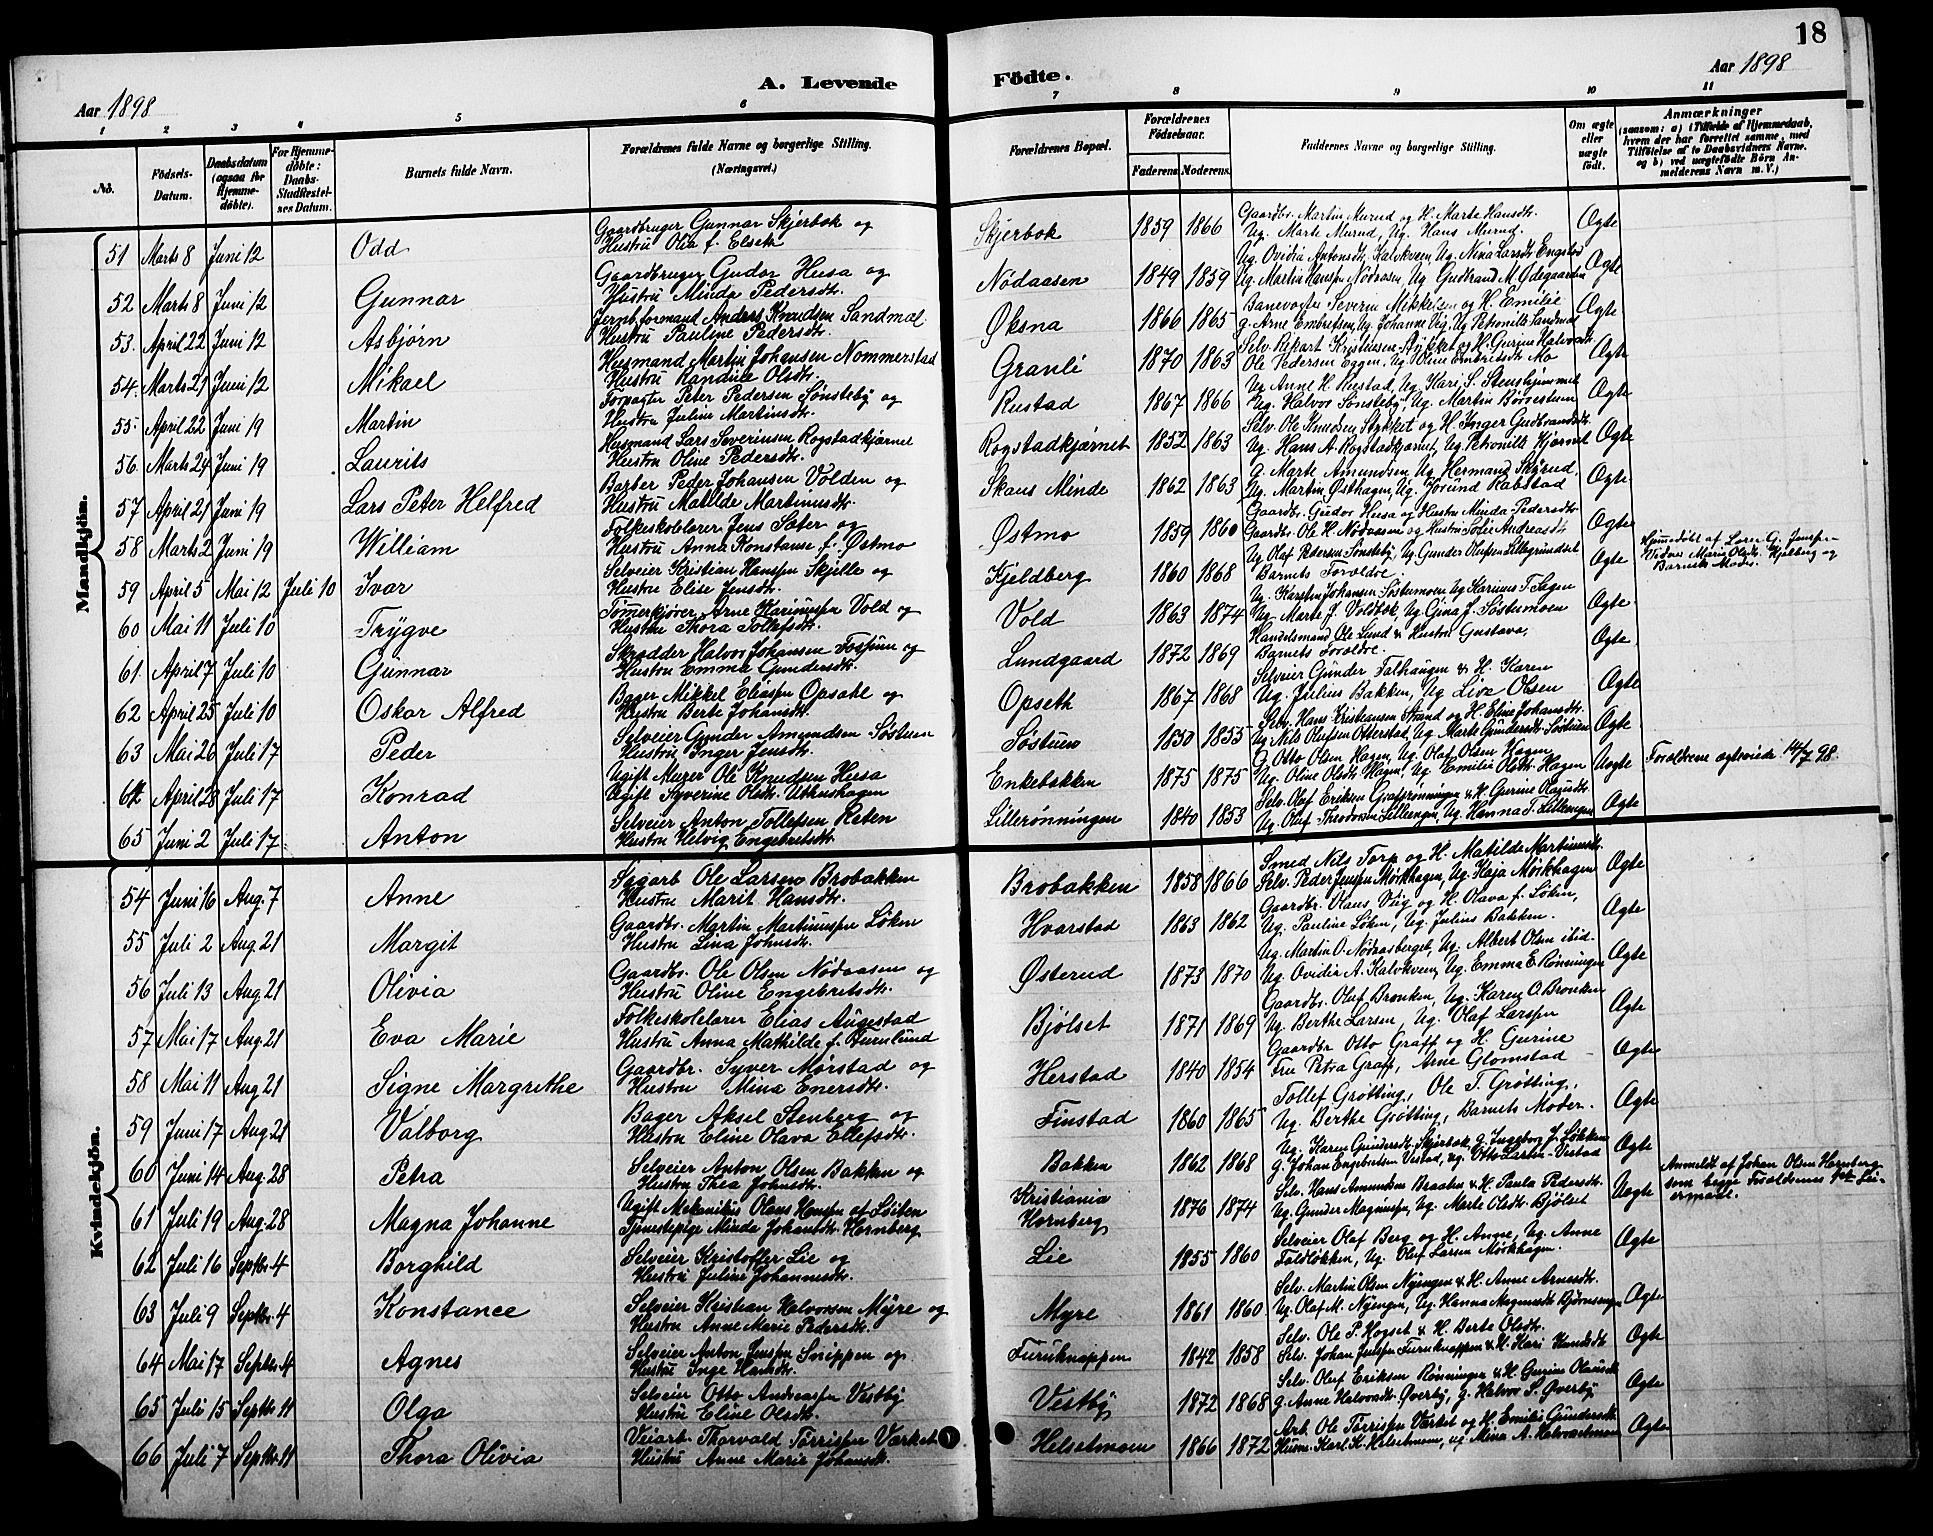 18
A. Levende Födte.
Aar 1898
Aar 1898
1 2 3 4 5 6 7 8 9 10 11
No.
Födsels-Datum.
Daabsdatum (ogsaa for Hjemmedöbte).
For Hjemmedöbte: Daabs-Stadfæstelses Datum.
Barnets fulde Navn.
Forældrenes fulde Navne og borgerlige Stilling. (Næringsvei.)
Forældrenes Bopæl.
Forældrenes Födselsaar.
Faderens Moderens
Faddernes Navne og borgerlige Stilling.
Om ægte eller uægte født.
Anmærkninger
(saasom: a) i Tilfælde af Hjemmedaab, hvem der har forrettet samme, med Tilföielse af to Daabsvidners Navne. og b) ved uægtefödte Börn Anmelderens Navn m. V.)
Mandkjön.
51 Marts 8 Juni 12 Odd Gaardbruger Gunnar Skjerbok og Hustru Olia f. Elseth Skjerbok 1859 1866 Gaardbr. Martin Murud og H. Marte Hansdt. Ug. Marte Murud, Ug. Hans Murud. Ægte
52 Marts 8 Juni 12 Gunnar Gaardbruger Gudor Husa og Hustru Minda Pedersdt. Nödaasen 1849 1859 Ug. Ovidia Antonsdt. Kalvkveen, Ug. Nina Larsdt. Engstad Ug. Martin Hansen Nödaasen, Ug Gudbrand M. Ødegaarden Ægte
53. April 22 Juni 12 Asbjørn Jernb. formand Anders Knudsen Sandmæl Hustru Pauline Pedersdt. Øksna 1866 1865 Banevogter Severin Mikkelsen og H. Emilie g. Arne Embretsen, Ug. Johanne Vig, Ug Petronille Sandmæl Ægte
54. Marts 21 Juni 12 Mikael Husmand Martin Johansen Nommerstad Hustru Randine Olsdt. Granli 1870 1863 Selv. Repart Kristiansen Stykket og H. Gurine Halvorsdt. Ole Pedersen Eggen, Ug. Oline Embretsdt. Mo Ægte
55. April 22 Juni 19 Martin Forpagter Peter Pedersen Sønsteby og Hustru Juline Martinsdt. Rustad 1867 1866 Ug Anne H. Rustad, Ug. Kari S. Stenshjemmet Ug. Halvor Sønsteby, Ug. Martin Börsesteen Ægte
56. Marts 24 Juni 19 Laurits Husmand Lars Severinsen Rogstadkjærnet Hustru Oline Pedersdt. Rogstadkjærnet 1852 1863 Selv. Ole Knudsen Stykket og H. Inger Gudbrandsdt. Ug. Hans A. Rogstadkjærnet, Ug. Petronille Kjernet Ægte
57 April 21 Juni 19 Lars Peter Helfred Barber Peder Johansen Volden og Hustru Matilde Martinusdt. Skaus Minde 1862 1863 g. Marte Amundsen, Ug. Hermand Skyrud Ug. Martin Østhagen, Ug. Jörund Rabstad Ægte
58 Marts 2 Juni 19 William Folkeskolelærer Jens Sæter og Hustru Anna Konstanse f. Østmo Østmo 1859 1860 Gaardbr. Gudor Husa og Hustru Minda Pedersdt. Gaardbr. Ole H. Nödaasen og Hustru Sofie Andreasdt. Ægte
59 April 5 Mai 12 Juli 10 Ivar Selveier Kristian Hansen Skjelle og Hustru Elise Jensdt. Kjeldberg 1860 1868 Ug Olaf Pedersen Sönsteby, Ug. Gunder Olufsen Lillegrundset Barnets Forældre. Ægte Hjemmedöbt af Lærer G. Jensen Vidner Marie Olsdt. Kjelberg og Barnets Moder.
60 Mai 11 Juli 10 Trygve Tømmerkjører Arne Karinusen Vold og Hustru Thora Tollefsdt. Vold 1863 1874 Ug. Karsten Johansen Söstumoen Ug Karinus T. Sagen Ug. Marte J. Voldbok, Ug Gina J. Söstumoen Ægte
61 April 7 Juli 10 Gunnar Skrædder Halvor Johansen Fossum og Hustru Emma Gundersdt. Lundgaard 1872 1869 Handelsmand Ole Lund & Hustru Gustava, Barnets Forældre. Ægte
62 April 25 Juli 10 Oskar Alfred Bager Mikkel Eliasen Opsahl og Hustru Berte Johansdt. Opseth 1867 1868 Selveier Günder Talhaugen & H. Karen Ug. Julius Bakken, Ug Liva Olsen Ægte
63 Mai 26 Juli 17 Peder Selveier Gunder Amundsen Söstuen Hustru Inger Jensdt. Söstuen 1850 1855 Selv. Hans Kristiansen Strand og H. Eline Johansdt. Ug. Nils Olufsen Otterstad, Ug. Marte Gundersdt. Söstuen Ægte
64 April 28 Juli 17 Konrad Ugift Murer Ole Knudsen Husa Ugift Syverine Olsdt. Uthushagen Enkebakken 1875 1875 G Otto Olsen Hagen, Ug. Olaf Olsen Hagen Ug. Oline Olsdt. Hagen, Ug Emilie Olsdt. Hagen Uægte Forældrene ægteviede 14/7 98.
65 Juni 2 Juli 17 Anton Selveier Anton Tollefsen Ræten Hustru Helvig Engebretsdt. Lillerønningen 1840 1853 Selv. Olaf Eriksen Graffrønningen & H Gurine Olausdt. Ug. Olaf Theodorsen Lilleengen, Ug. Hanna T. Lilleengen Ægte
Kvindekjön.
54 Juni 16 Aug. 7 Anne Sagarb Ole Larsen Brobakken Hustru Marit Hansdt. Brobakken 1858 1866 Smed Nils Torp og H. Matilde Martinusdt. Selv. Peder Jensen Mørkhagen, Ug. Kaja Mørkhagen Ægte
55 Juli 2 Aug. 21 Margit Gaardbr. Martin Martinusen Løken Hustru Lina Johnsdt. Hvarstad 1863 1862 Gaardbr. Olaus Vig og H. Olava f. Løken, Ug. Pauline Løken, Ug. Julius Bakken. Ægte
56 Juli 13 Aug. 21 Olivia Gaardbr. Ole Olsen Nødaasen og Hustru Oline Engebretsdt. Østerud 1873 1870 Ug. Martin O. Nødaasberget, Ug. Albert Olsen ibid. Ug. Ovidia A. Kalvkveen, Ug. Emma E. Rønningen Ægte
57 Mai 17 Aug. 21 Eva Marie Folkeskolelærer Elias Augestad Hustru Anna Mathilde f. Burnlund Bjølset 1871 1869 Gaardbr. Olaf Bronken, Ug. Karen O. Bronken Ug. Berthe Larsen, Ug. Olaf Larsen Ægte
58 Mai 11 Aug 21 Signe Margrethe Gaardbr. Syver Mørstad og Hustru Mina Enersdt. Herstad 1840 1854 Gaardbr Otto Graff og H. Gurine Fru Petra Graff, Arne Glomstad Ægte
59 Juni 17 Aug. 21 Valborg Bager Aksel Stenberg og Hustru Eline Olava Ellefsdt. Finstad 1860 1865 Tollef Grøtting, Ole T. Grøtting, Ug. Berthe Grøtting, Barnets Moder. Ægte
60 Juni 14 Aug. 28 Petra Selveier Anton Olsen Bakken og Hustru Thea Johnsdt. Bakken 1862 1868 Ug. Karen Gundersdt. Skjerbok, g. Ingeborg J. Løkken g. Johan Engebretsen Vestad, ug. Otto Larsen-Vestad Ægte
61 Juli 19 Aug. 28 Magna Johanne Ugift Mekanikus Olaus Hansen af Løiten Tjenestepige Minda Johansdt. Hornberg Kristiania Hornberg 1876 1874 Selv. Hans Amundsen Braaten & H. Paula Pedersdt. Ug. Gunder Magnusen, Ug. Marte Olsdt. Bjølset Uægte Anmeldt af Johan Olsen Hornberg som begge Forældrenes 1ste Leiermaal.
62 Juli 16 Septbr. 4 Borghild Selveier Kristoffer Lie og Hustru Juline Johannesdt. Lie 1855 1860 Selveier Olaf Berg og H. Anne, Ug. Anne Faldløkken, Ug. Oluf Larsen Mørkhagen. Ægte
63 Juli 9 Septbr. 4 Konstance Selveier Kristian Halvorsen Myre og Hustru Anne Marie Pedersdt. Myre 1861 1860 Selv. Martin Olsen Nyengen & H. Anne Arnesdt. Ug. Olaf M. Nyengen, Ug. Hanna Magnusdt. Bjørnsengen Ægte
64 Mai 17 Septbr. 4 Agnes Selveier Anton Jensen Snippen og Hustru Inge Hansdt. Furuknappen 1842 1858 Selv. Ole P. Hogset & H. Berte Olsdt. Selv. Johan Jensen Furuknappen & H. Kari Hansdt. Ægte
65 Juli 15 Septbr. 11 Olga Selveier Otto Andreasen Vestby Hustru Eline Olsdt. Vestby 1872 1868 Selv. Oluf Eriksen Rønningen & H. Gurine Olausdt. g. Anne Halvorsdt. Øverby, g. Halvor S. Øverby Ægte
66 Juli 7 Septbr. 11 Thora Olivia Veiarb. Thorvald Torrisen Værket Hustru Anne Marie Johansdt. Helsetmoen 1866 1872 Arb. Ole Tørrisen Værket og H. Emilie Gundersdt. Husm. Karl K. Helsetmoen, ug. Mina A. Halvorsetmoen Ægte